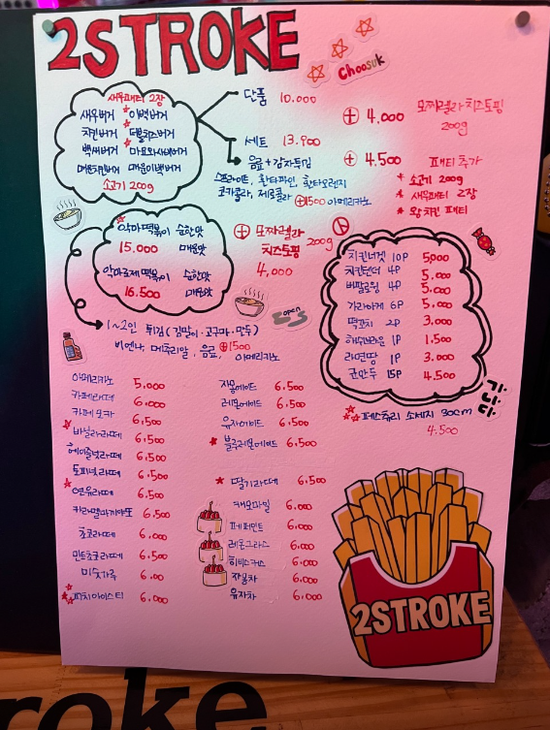 2STROKE
Choosuk
새우패티 2장
새우버거 이백버거
치킨버거 더블치즈버거
백쉬버거 마요와사비버거
매운치킨버거 매운이백버거
소고기 200g
단품 10.000
세트 13.900
음료 + 감자튀김
스프라이트, 환타파인, 환타오렌지
코카콜라, 제로콜라 +1500 아메리카노
+ 4,000 모짜렐라 치즈토핑
200g
+ 4.500 패티 추가
* 소고기 200g
* 새우패티 2장
* 왕치킨 패티
악마떡볶이 순한맛
15.000 매운맛
악마로제떡볶이 순한맛
16.500 매운맛
+ 모짜렐라
치즈토핑 200g
4,000
open
1~2인 튀김 (김말이·고구마·만두)
비엔나, 메추리알, 음료, +1500 아메리카노
치킨너겟 10P 5,000
치킨텐더 4P 5.000
버팔로윙 4P 5.000
가라아게 6P 5.000
떡꼬치 2P 3.000
해쉬브라운 1P 1.500
라면땅 1P 3.000
군만두 15P 4.500
가·
나·
다·
페츄리 소세지 30cm
4.500
아메리카노 5,000
카페라떼 6,000
카페모카 6,500
바닐라라떼 6,500
헤이즐넛라떼 6,500
토피넛라떼 6,500
연유라떼 6,500
카라멜마끼야또 6,500
초코라떼 6,000
민트초코라떼 6,500
미숫가루 6,00
피치아이스티 6,000
자몽에이드 6,500
레몬에이드 6,500
유자에이드 6,500
블루레몬에이드 6,500
딸기라떼 6,500
캐모마일 6,000
페퍼민트 6,000
레몬그라스 6,000
히비스커스 6,000
자몽차 6,000
유자차 6,000
2STROKE
roke